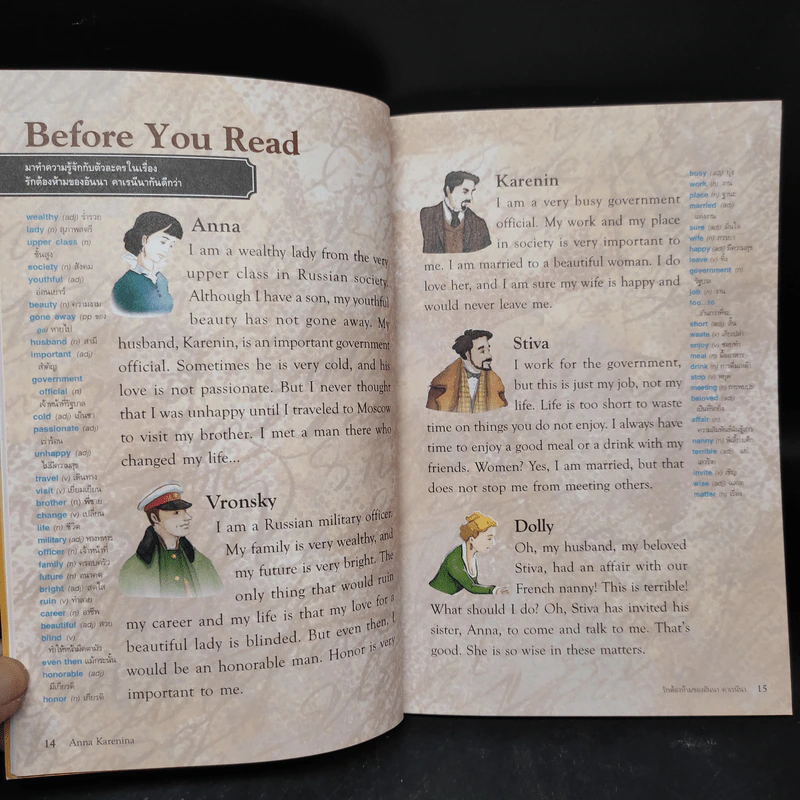 Before You Read
มาทำความรู้จักกับตัวละครในเรื่อง
รักต้องห้ามของอันนา คาเรนีนากันดีกว่า
wealthy (adj) ร่ำรวย
lady (n) สุภาพสตรี
upper class (n)
ชั้นสูง
society (n) สังคม
youthful (adj)
อ่อนเยาว์
beauty (n) ความงาม
gone away (pp ของ
go) หายไป
husband (n) สามี
important (adj)
สำคัญ
government
official (n)
เจ้าหน้าที่รัฐบาล
cold (adj) เย็นชา
passionate (adj)
เร่าร้อน
unhappy (adj)
ไม่มีความสุข
travel (v) เดินทาง
visit (v) เยี่ยมเยียน
brother (n) พี่ชาย
change (v) เปลี่ยน
life (n) ชีวิต
military (adj) ทางทหาร
officer (n) เจ้าหน้าที่
family (n) ครอบครัว
future (n) อนาคต
bright (adj) สดใส
ruin (v) ทำลาย
career (n) อาชีพ
beautiful (adj) สวย
blind (v)
ทำให้หน้ามืดตามัว
even then แม้กระนั้น
honorable (adj)
มีเกียรติ
honor (n) เกียรติ
Anna
I am a wealthy lady from the very
upper class in Russian society.
Although I have a son, my youthful
beauty has not gone away. My
husband, Karenin, is an important government
official. Sometimes he is very cold, and his
love is not passionate. But I never thought
that I was unhappy until I traveled to Moscow
to visit my brother. I met a man there who
changed my life...
Vronsky
I am a Russian military officer.
My family is very wealthy, and
my future is very bright. The
only thing that would ruin
my career and my life is that my love for a
beautiful lady is blinded. But even then, I
would be an honorable man. Honor is very
important to me.
14 Anna Karenina
Karenin
I am a very busy government
official. My work and my place
in society is very important to
me. I am married to a beautiful woman. I do
love her, and I am sure my wife is happy and
would never leave me.
Stiva
I work for the government,
but this is just my job, not my
life. Life is too short to waste
time on things you do not enjoy. I always have
time to enjoy a good meal or a drink with my
friends. Women? Yes, I am married, but that
does not stop me from meeting others.
Dolly
Oh, my husband, my beloved
Stiva, had an affair with our
French nanny! This is terrible!
What should I do? Oh, Stiva has invited his
sister, Anna, to come and talk to me. That's
good. She is so wise in these matters.
busy (adj) ยุ่ง
work (n) งาน
place (n) ฐานะ
married (adj)
แต่งงาน
sure (adj) มั่นใจ
wife (n) ภรรยา
happy (adj) มีความสุข
leave (v) ทิ้ง
government (n)
รัฐบาล
job (n) งาน
too...to
short (adj) สั้น
waste (v)
enjoy (v)
meal (n) มื้ออาหาร
drink (n)
stop (v) หยุด
meeting (n)
beloved (adj)
เป็นที่รักยิ่ง
affair (n)
nanny (n) พี่เลี้ยงเด็ก
terrible (adj)
invite (v) เชิญ
wise (adj) ฉลาด
matter (n) เรื่อง
รักต้องห้ามของอันนา คาเรนีนา 15